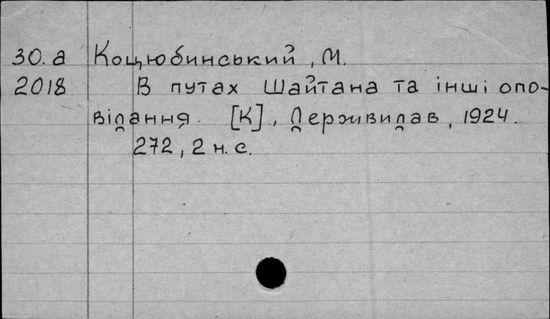 30.а Коцюбинський, М.
2018 В путах Шайтана та інші опо-
відання. [К], Держвидав, 1924.
272, 2 н. с.